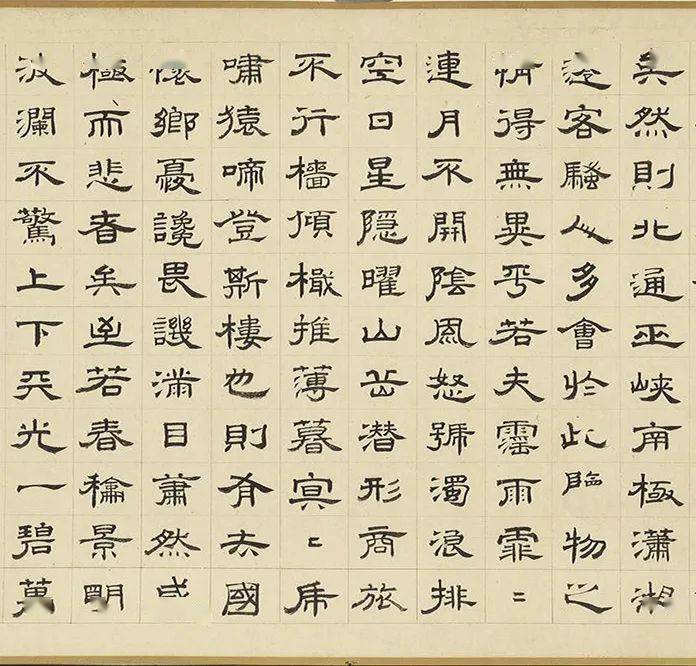 矣然則北通巫峽南極瀟湘
遷客騷人多會於此臨物之
情得無異乎若夫霪雨霏〻
連月不開陰風怒號濁浪排
空日星隱曜山岳潛形商旅
不行檣傾檝摧薄暮冥〻虎
嘯猿啼登斯樓也則有去國
懷鄉憂讒畏譏滿目蕭然
極而悲者矣至若春龢景明
波瀾不驚上下天光一碧萬